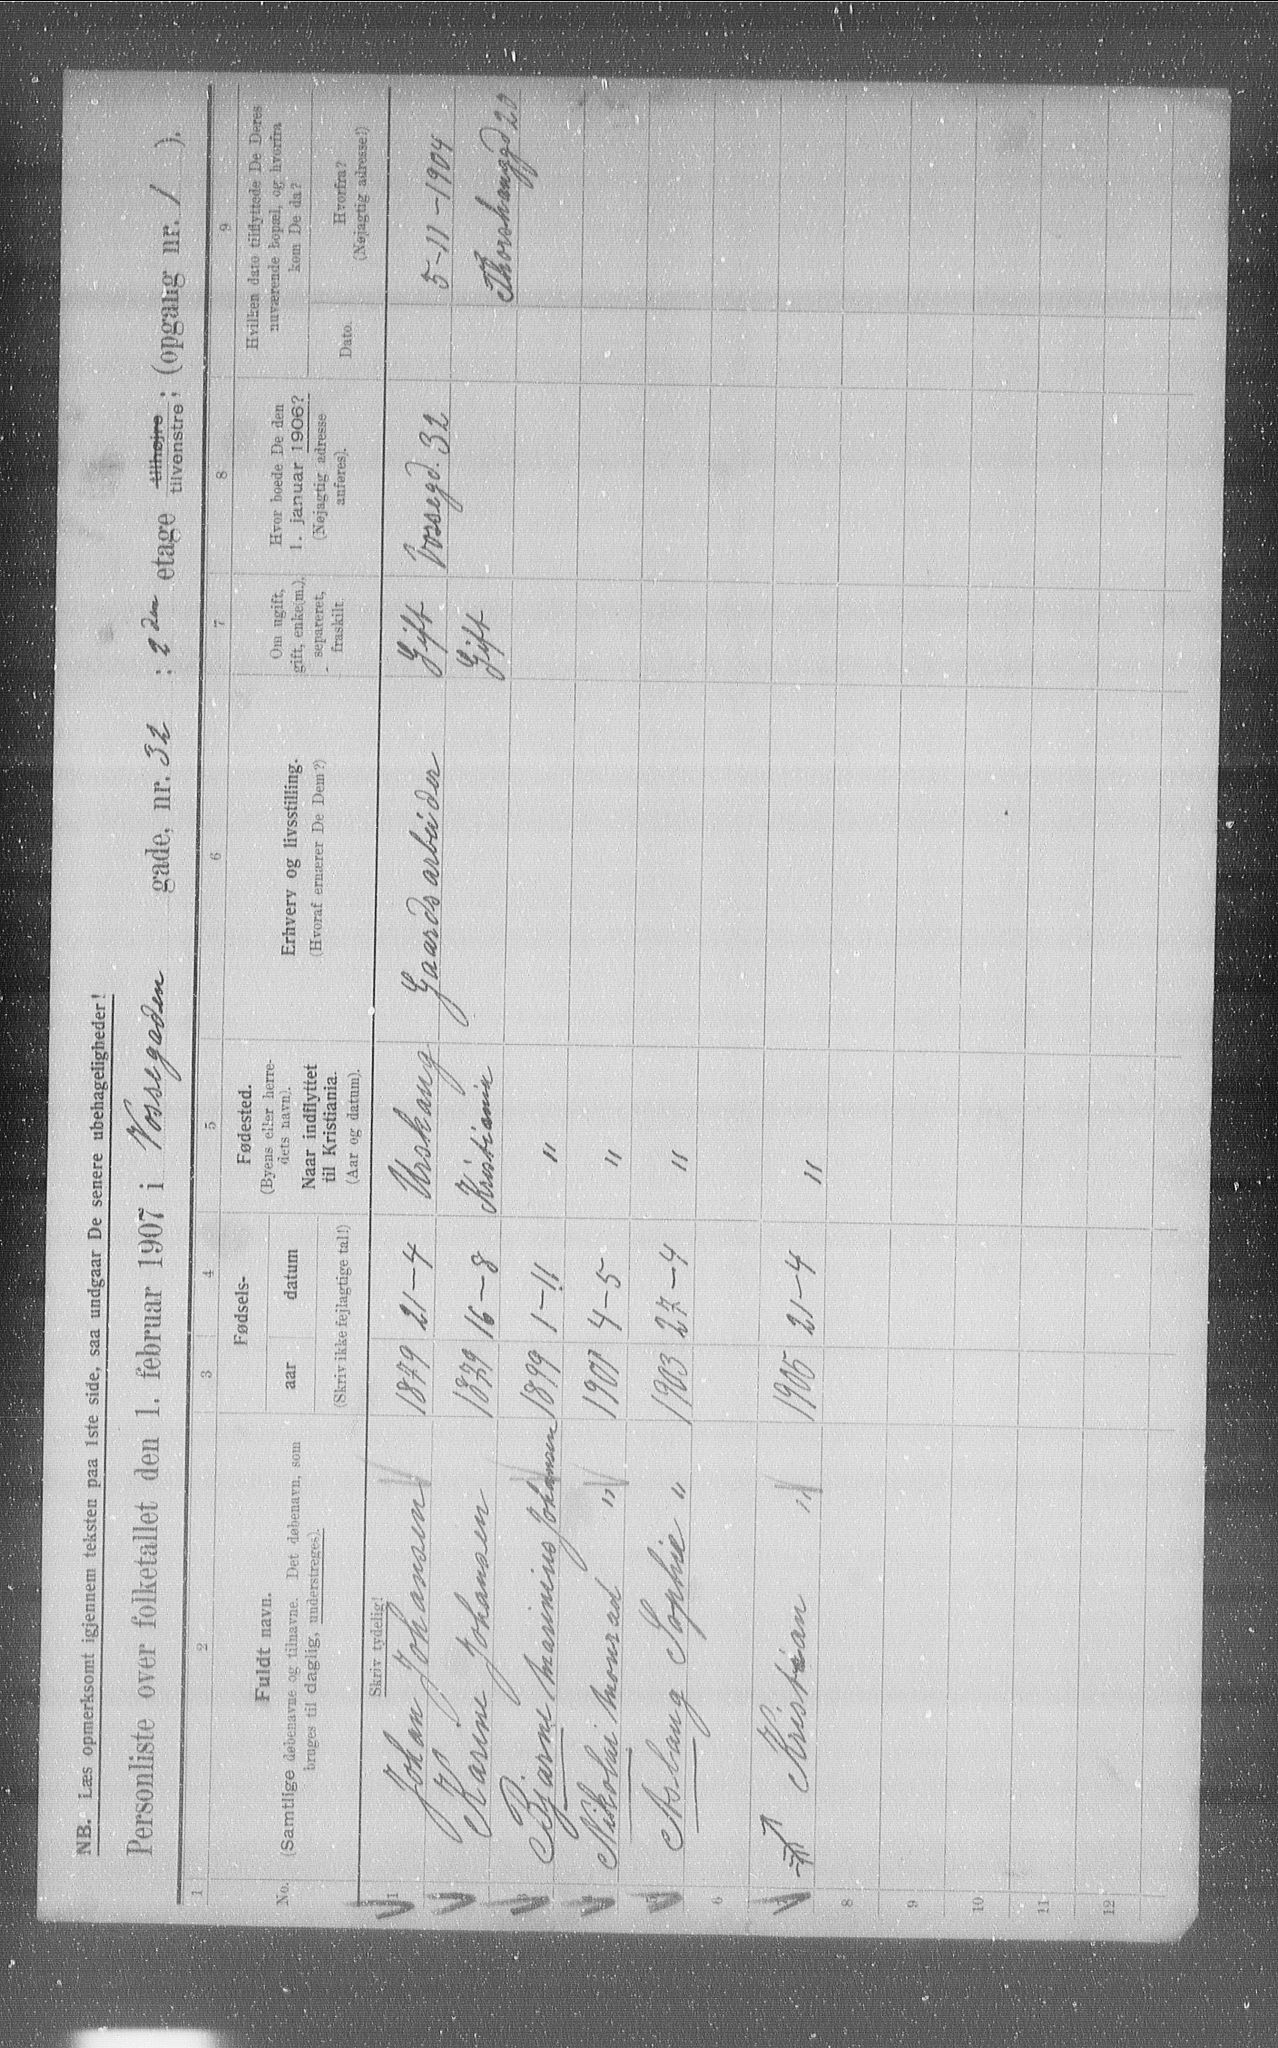 NB. Læs opmerksomt igjennem teksten paa 1ste side, saa undgaar De senere ubehageligheder!
Personliste over folketallet den 1. februar 1907 i Vossegaden gade, nr. 32 : 2den etage tilhøjre tilvenstre ; (opgang nr. 1 ).
1 2 3 4 5 6 7 8 9
No.
Fuldt navn.
(Samtlige døbenavne og tilnavne. Det døbenavn, som
bruges til daglig, understreges).
Fødsels-
aar datum
(Skriv ikke fejlagtige tal!)
Fødested.
(Byens eller herre-
dets navn).
Naar indflyttet
til Kristiania.
(Aar og datum).
Erhverv og livsstilling.
(Hvoraf ernærer De Dem?)
Om ugift,
gift, enke(m.),
separeret,
fraskilt.
Hvor boede De den
1. januar 1906?
(Nøjagtig adresse
anføres).
Hvilken dato tilflyttede De Deres
nuværende bopæl, og hvorfra
kom De da?
Dato.
Hvorfra?
(Nøjagtig adresse!)
Skriv tydelig!
1 Johan Johansen 1879 21-4 Urskaug Gaardsarbeider Gift Vossegd. 32 5-11-1904
2 Karine Johansen 1879 16-8 Kristiania Gift Thorshauggd 20
3 Bjarne Marinius Johansen 1899 1-11 "
4 Nikolai Monrad " 1901 4-5 "
5 Aslaug Sophie " 1903 27-4 "
6
7 Kristian " 1905 21-4 "
8
9
10
11
12